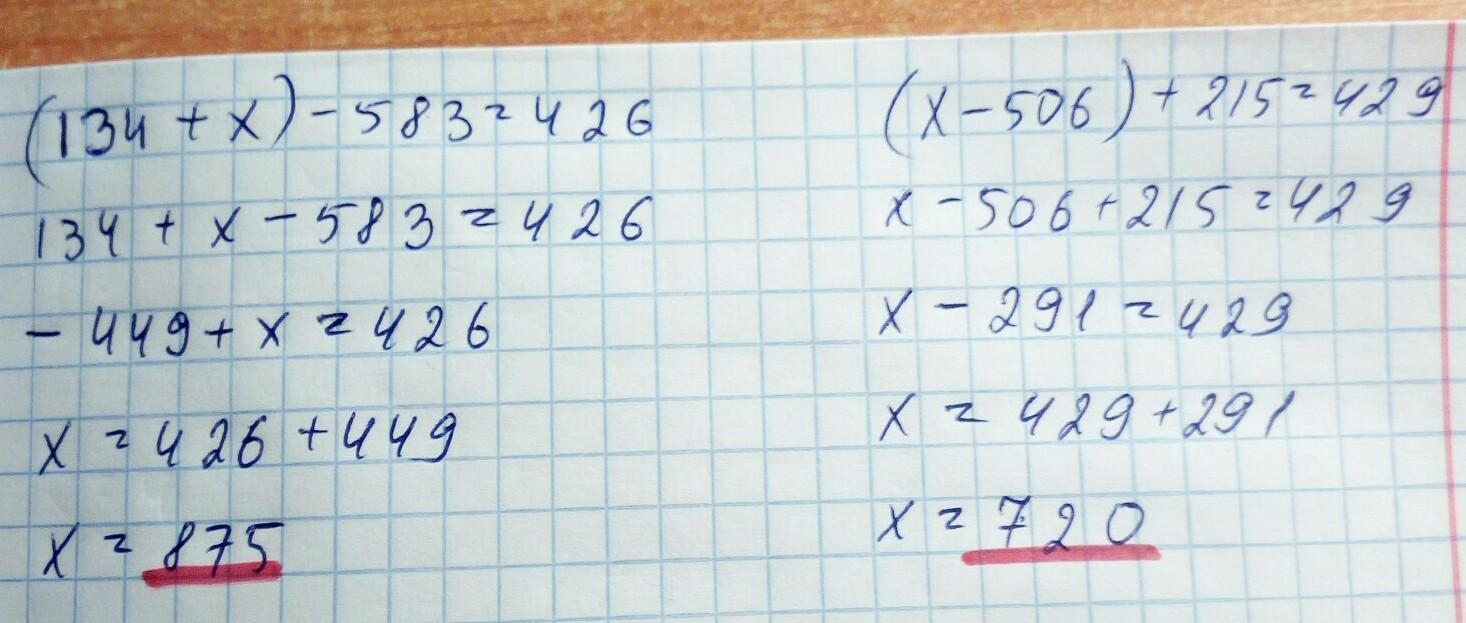 (134 + x) - 583 = 426
134 + x - 583 = 426
- 449 + x = 426
x = 426 + 449
x = 875
(x - 506) + 215 = 429
x - 506 + 215 = 429
x - 291 = 429
x = 429 + 291
x = 720